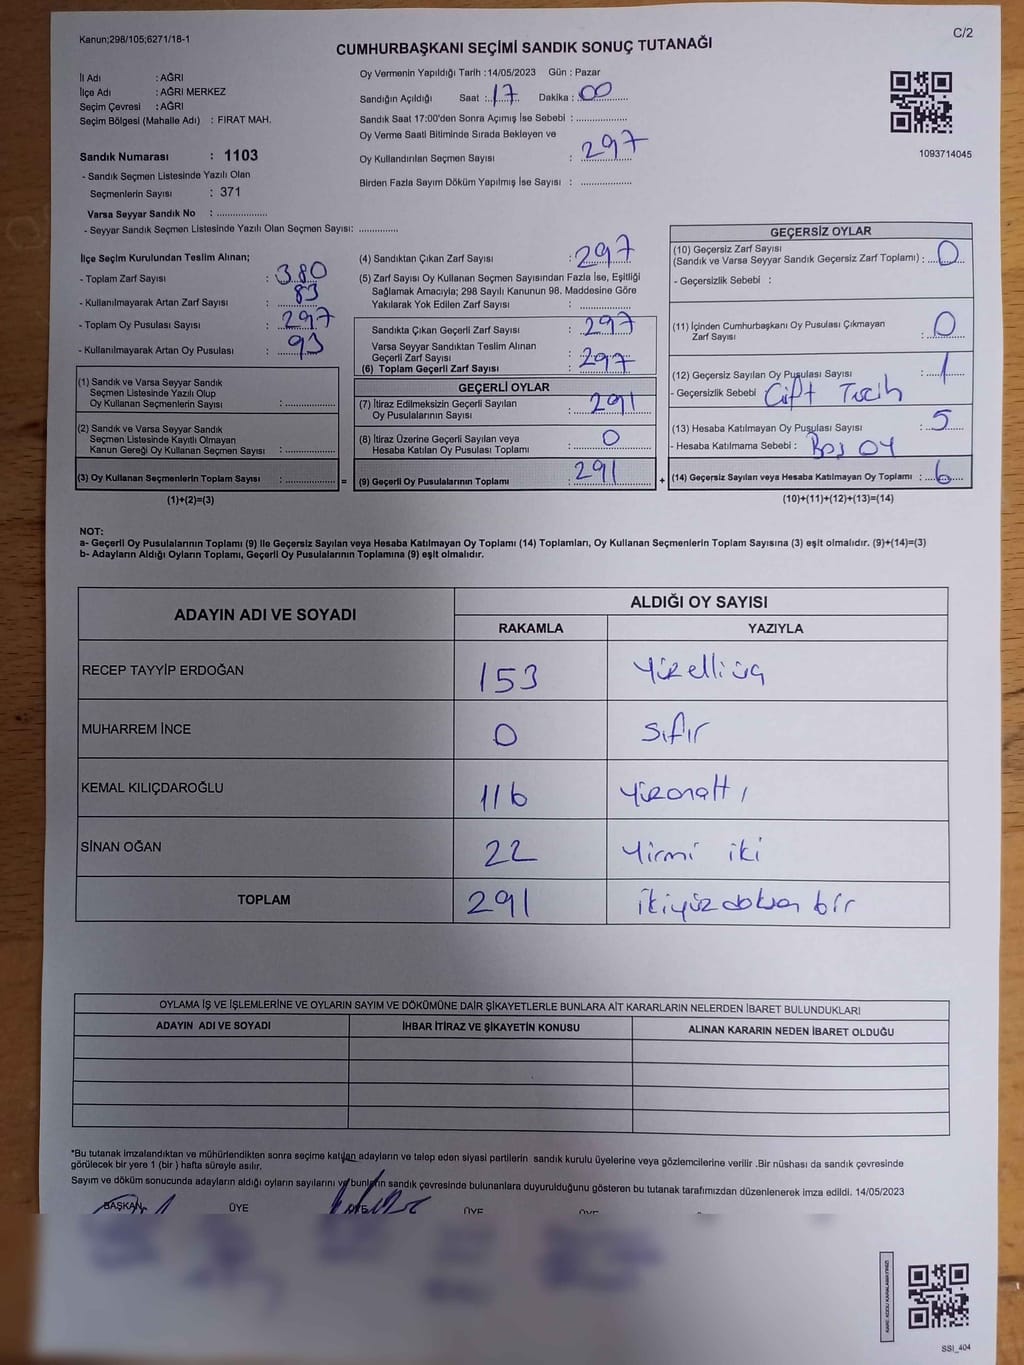 Kanun;298/105;6271/18-1
C/2
CUMHURBAŞKANI SEÇİMİ SANDIK SONUÇ TUTANAĞI
İl Adı : AĞRI
İlçe Adı : AĞRI MERKEZ
Seçim Çevresi : AĞRI
Seçim Bölgesi (Mahalle Adı) : FIRAT MAH.
Sandık Numarası : 1103
- Sandık Seçmen Listesinde Yazılı Olan
Seçmenlerin Sayısı : 371
Varsa Seyyar Sandık No : ..................
- Seyyar Sandık Seçmen Listesinde Yazılı Olan Seçmen Sayısı: .............
Oy Vermenin Yapıldığı Tarih :14/05/2023 Gün : Pazar
Sandığın Açıldığı Saat : 17 Dakika : 00
Sandık Saat 17:00'den Sonra Açımış İse Sebebi : ..................
Oy Verme Saati Bitiminde Sırada Bekleyen ve
Oy Kullandırılan Seçmen Sayısı : 297
Birden Fazla Sayım Döküm Yapılmış İse Sayısı : ..................
1093714045
İlçe Seçim Kurulundan Teslim Alınan;
- Toplam Zarf Sayısı : 380
- Kullanılmayarak Artan Zarf Sayısı : 83
- Toplam Oy Pusulası Sayısı : 297
- Kullanılmayarak Artan Oy Pusulası : 93
(1) Sandık ve Varsa Seyyar Sandık
Seçmen Listesinde Yazılı Olup
Oy Kullanan Seçmenlerin Sayısı : ..................
(2) Sandık ve Varsa Seyyar Sandık
Seçmen Listesinde Kayıtlı Olmayan
Kanun Gereği Oy Kullanan Seçmen Sayısı : ..................
(3) Oy Kullanan Seçmenlerin Toplam Sayısı : .................. =
(1)+(2)=(3)
(4) Sandıktan Çıkan Zarf Sayısı : 297
(5) Zarf Sayısı Oy Kullanan Seçmen Sayısından Fazla İse, Eşitliği
Sağlamak Amacıyla; 298 Sayılı Kanunun 98. Maddesine Göre
Yakılarak Yok Edilen Zarf Sayısı : ..................
Sandıkta Çıkan Geçerli Zarf Sayısı : 297
Varsa Seyyar Sandıktan Teslim Alınan
Geçerli Zarf Sayısı
(6) Toplam Geçerli Zarf Sayısı : 297
GEÇERLİ OYLAR
(7) İtiraz Edilmeksizin Geçerli Sayılan
Oy Pusulalarının Sayısı : 291
(8) İtiraz Üzerine Geçerli Sayılan veya
Hesaba Katılan Oy Pusulası Toplamı : 0
(9) Geçerli Oy Pusulalarının Toplamı : 291 +
GEÇERSİZ OYLAR
(10) Geçersiz Zarf Sayısı
(Sandık ve Varsa Seyyar Sandık Geçersiz Zarf Toplamı) : 0
- Geçersizlik Sebebi :
(11) İçinden Cumhurbaşkanı Oy Pusulası Çıkmayan
Zarf Sayısı : 0
(12) Geçersiz Sayılan Oy Pusulası Sayısı : 1
- Geçersizlik Sebebi Çift Tercih
(13) Hesaba Katılmayan Oy Pusulası Sayısı : 5
- Hesaba Katılmama Sebebi : Boş OY
(14) Geçersiz Sayılan veya Hesaba Katılmayan Oy Toplamı : 6
(10)+(11)+(12)+(13)=(14)
NOT:
a- Geçerli Oy Pusulalarının Toplamı (9) ile Geçersiz Sayılan veya Hesaba Katılmayan Oy Toplamı (14) Toplamları, Oy Kullanan Seçmenlerin Toplam Sayısına (3) eşit olmalıdır. (9)+(14)=(3)
b- Adayların Aldığı Oyların Toplamı, Geçerli Oy Pusulalarının Toplamına (9) eşit olmalıdır.
ADAYIN ADI VE SOYADI ALDIĞI OY SAYISI
RAKAMLA YAZIYLA
RECEP TAYYİP ERDOĞAN 153 Yüzelliüç
MUHARREM İNCE 0 sıfır
KEMAL KILIÇDAROĞLU 116 yüzonaltı
SİNAN OĞAN 22 Yirmi iki
TOPLAM 291 ikiyüzdoksan bir
OYLAMA İŞ VE İŞLEMLERİNE VE OYLARIN SAYIM VE DÖKÜMÜNE DAİR ŞİKAYETLERLE BUNLARA AİT KARARLARIN NELERDEN İBARET BULUNDUKLARI
ADAYIN ADI VE SOYADI İHBAR İTİRAZ VE ŞİKAYETİN KONUSU ALINAN KARARIN NEDEN İBARET OLDUĞU
*Bu tutanak imzalandıktan ve mühürlendikten sonra seçime katılan adayların ve talep eden siyasi partilerin sandık kurulu üyelerine veya gözlemcilerine verilir .Bir nüshası da sandık çevresinde
görülecek bir yere 1 (bir ) hafta süreyle asılır.
Sayım ve döküm sonucunda adayların aldığı oyların sayılarını ve bunların sandık çevresinde bulunanlara duyurulduğunu gösteren bu tutanak tarafımızdan düzenlenerek imza edildi. 14/05/2023
BAŞKAN ÜYE ÜYE ÜYE
SSI_404